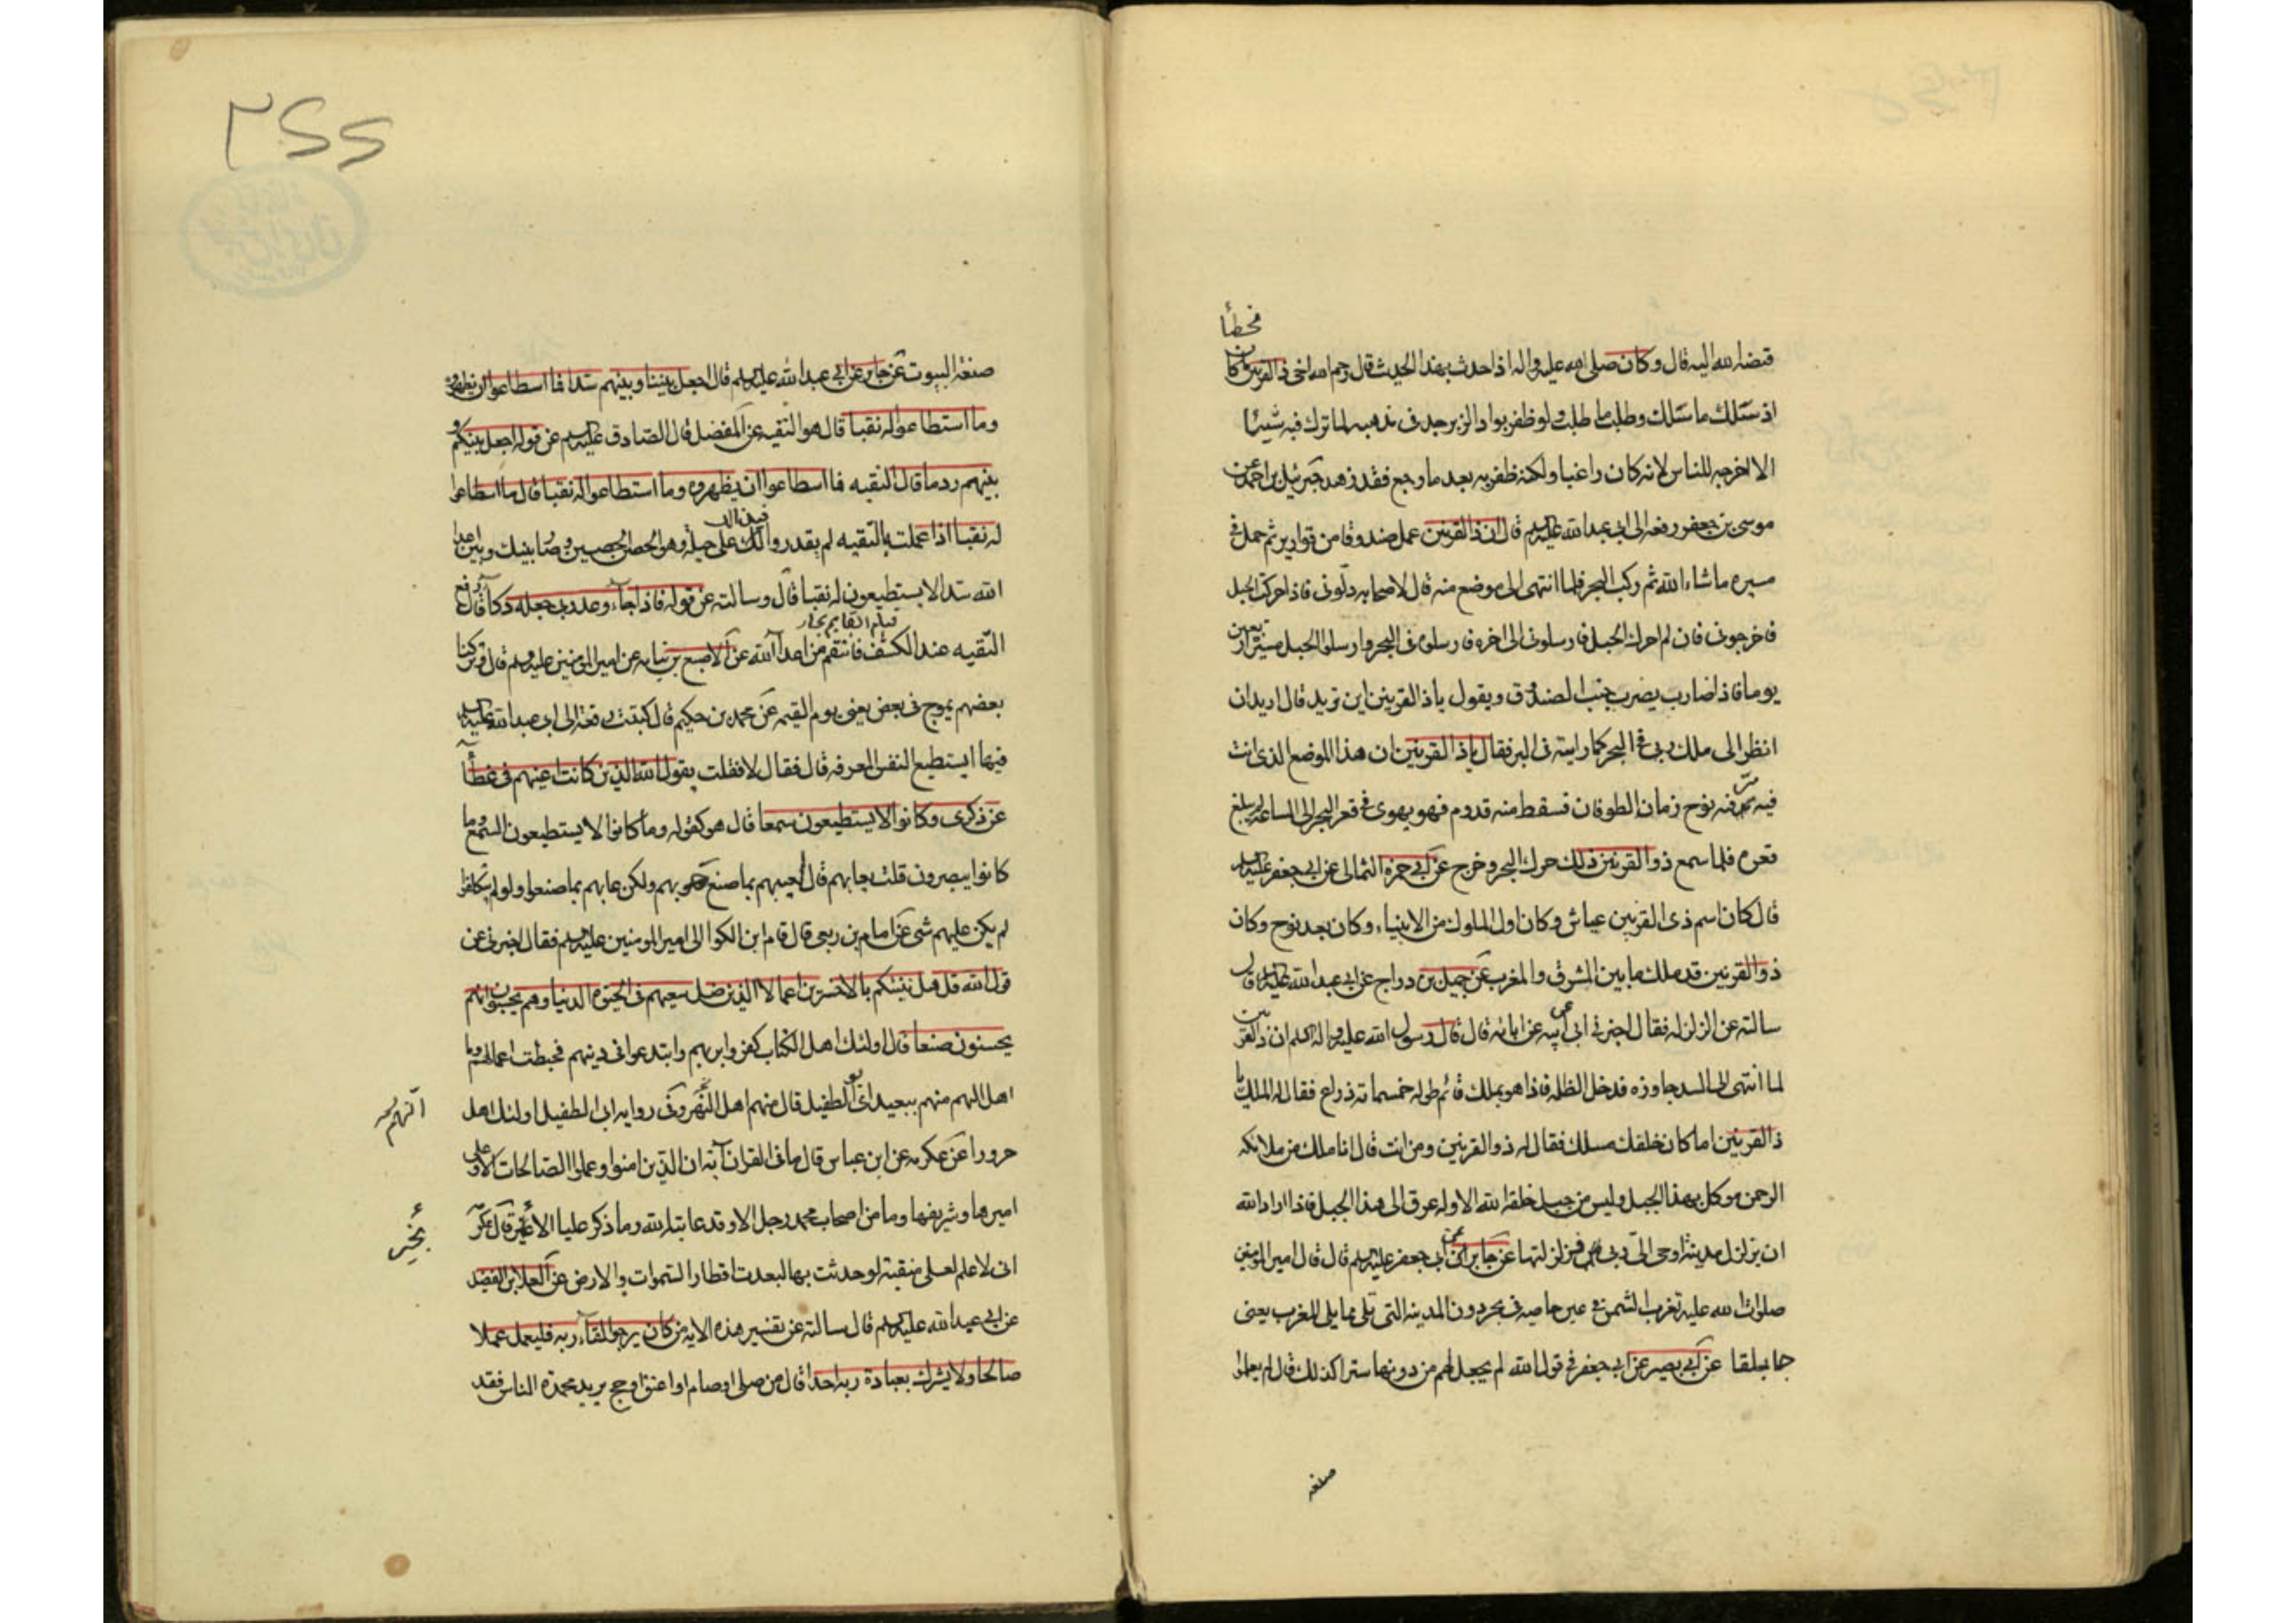 فخطأ
قبضه الله اليه قال وكان صلى الله عليه واله اذا حدث بهذا الحديث قال رحم الله اخى ذا القرنين ما كان
اذ سلك ما سلك وطلب ما طلب ولو ظفر بواد الزبرجد فى مذهبه لما ترك فيه شيئا
الا اخرجه للناس لانه كان راغبا ولكنه ظفر به بعد ما رجع فقد زهد جبرئيل بن احمد عن
موسى بن جعفر رفعه الى ابى عبد الله عليه السلم قال ان ذا القرنين عمل صندوقا من قوارير ثم حمل فى
مسيره ما شاء الله ثم ركب البحر فلما انتهى الى موضع منه قال لاصحابه دلونى فاذا حركت الحبل
فاخرجونى فان لم احرك الحبل فارسلونى الى اخره فارسلوه فى البحر وارسلوا الحبل مسيرة اربعين
يوما فاذا ضارب يضرب جنب الصندوق ويقول يا ذا القرنين اين تريد قال اريد ان
انظر الى ملك ربى فى البحر كما رايته فى البر فقال يا ذا القرنين ان هذا الموضع الذى انت
فيه مر فيه نوح زمان الطوفان فسقط منه قدوم فهو يهوى فى قعر البحر الى الساعة لم يبلغ
قعره فلما سمع ذو القرنين ذلك حرك الحبل وخرج عن ابى حمزه الثمالى عن ابى جعفر عليه السلم
قال كان اسم ذى القرنين عياش وكان اول الملوك من الانبياء وكان بعد نوح وكان
ذو القرنين قد ملك ما بين المشرق والمغرب عن جميل بن دراج عن ابى عبد الله عليه السلم قال
سالته عن الزلزله فقال اخبرنى ابى عن ابيه عن ابائه قال قال رسول الله عليه واله السلم ان ذا القرنين
لما انتهى الى السد جاوزه فدخل الظلمه فاذا هو بملك قائم طوله خمسمائة ذراع فقال له الملك يا
ذا القرنين اما كان خلفك مسلك فقال له ذو القرنين ومن انت قال انا ملك من ملائكة
الرحمن موكل بهذا الجبل وليس من جبل خلقه الله الا وله عرق الى هذا الجبل فاذا اراد الله
ان يزلزل مدينة اوحى الى ربى فزلزلتها عن جابر عن ابى جعفر عليه السلم قال قال امير المومنين
صلوات الله عليه تغرب الشمس فى عين حاميه فى بحر دون المدينه التى تلى مما يلى المغرب يعنى
جابلقا عن ابى بصير عن ابى جعفر فى قول الله لم يجعل لهم من دونها سترا كذلك قال لم يعلموا
صنعه
٣٤٤
صنعه البيوت عن جابر عن ابى عبد الله عليه السلم قال اجعل بيننا وبينهم سدا فما اسطاعوا ان يظهروه
وما استطاعوا له نقبا قال هو التقيه عن المفضل قال سالت الصادق عليه السلم عن قوله اجعل بينكم و
بينهم ردما قال التقيه فما اسطاعوا ان يظهروه وما استطاعوا له نقبا قال ما استطاعوا
له نقبا اذا عملت بالتقيه لم يقدروا لك على حيله وهو الحصن الحصين وصار بينك وبين اعداء
الله سدا لا يستطيعون له نقبا قال وسالته عن قوله فاذا جاء وعد ربى جعله دكا قال رفع
التقيه عند الكشف فانتقم من اعداء الله عن الاصبغ بن نباته عن امير المومنين عليه السلم قال وتركنا
بعضهم يموج فى بعض يعنى يوم القيمه عن محمد بن حكيم قال كتبت رقعة الى ابى عبد الله عليه السلم
فيها ايستطيع النفس المعرفه قال فقال لا فقلت يقول الله الذين كانت اعينهم فى غطاء
عن ذكرى وكانوا لا يستطيعون سمعا قال هو كقوله وما كانوا لا يستطيعون السمع وما
كانوا يبصرون قلت يعابهم قال لم يعيبهم بما صنع هو بهم ولكن عابهم بما صنعوا ولو لم يتكلفوا
لم يكن عليهم شى عن امام بن ربعى قال قام ابن الكوا الى امير المومنين عليه السلم فقال اخبرنى عن
قول الله قل هل ننبئكم بالاخسرين اعمالا الذين ضل سعيهم فى الحيوة الدنيا وهم يحسبون انهم
يحسنون صنعا قال اولئك اهل الكتاب كفروا بربهم وابتدعوا فى دينهم فحبطت اعمالهم وما
اهل النهر منهم ببعيد ابى الطفيل قال منهم اهل النهر وفى روايه ابى الطفيل اولئك اهل
حرورا عن عكرمه عن ابن عباس قال ما فى القران آية ان الذين امنوا وعملوا الصالحات الا وعلى
اميرها وشريفها وما من اصحاب محمد رجل الا وقد عاتبه الله وما ذكر عليا الا بخير قال عكرمة
بخير
انى لاعلم لعلى منقبة لو حدثت بها لبعدت اقطار السموات والارض عن العلا بن الفضيل
عن ابى عبد الله عليه السلم قال سالته عن تفسير هذه الايه من كان يرجو لقاء ربه فليعمل عملا
صالحا ولا يشرك بعبادة ربه احدا قال من صلى او صام او اعتق او حج يريد محمدة الناس فقد